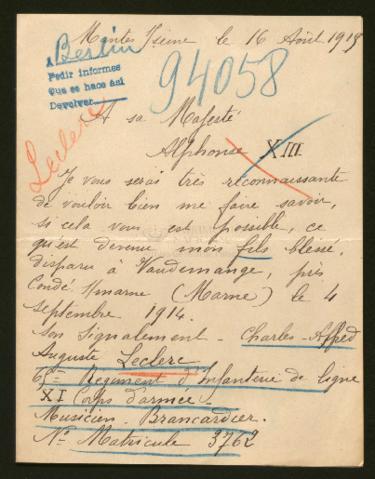 Mantes s/Seine le 16 Août 1915
A Berlin
Pedir informes
Que se hace así
Devolver
94058
Leclerc
A sa Majesté
Alphonse XIII.
Je vous serai très reconnaissante
de vouloir bien me faire savoir,
si cela vous est possible, ce
qu'est devenu mon fils blessé,
disparu à Vaudemange, près
Condé s/marne (Marne) le 4
septembre 1914.
Son signalement - Charles-Alfred
Auguste Leclerc
Régiment d'Infanterie de ligne
XI Corps d'armée -
Musicien - Brancardier.
N° Matricule 3762